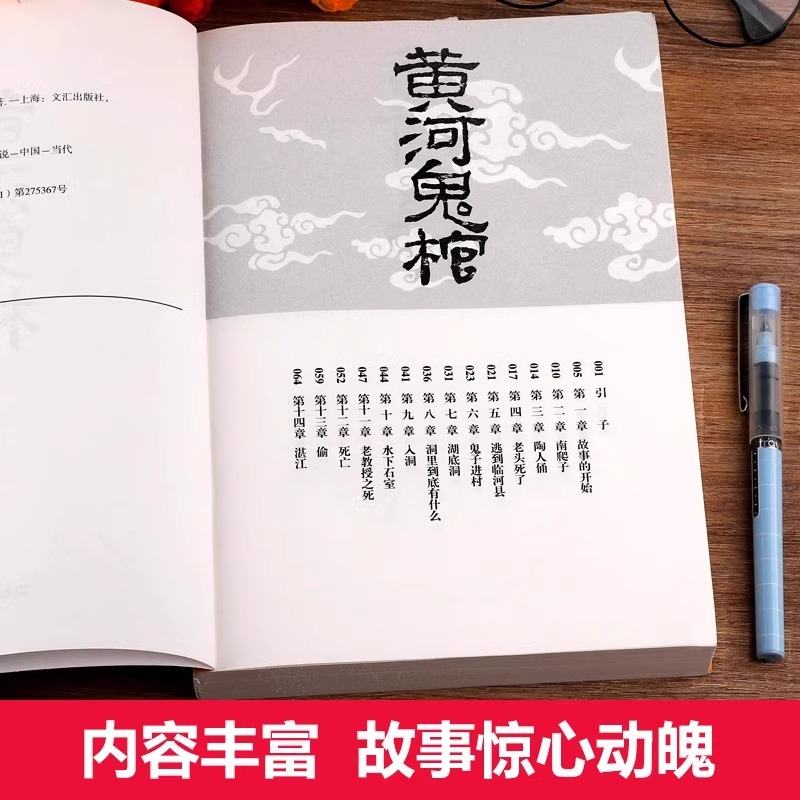 著.—上海：文汇出版社，
说—中国—当代
1）第275367号
黄河鬼棺
001 引子
005 第一章 故事的开始
010 第二章 南爬子
014 第三章 陶人俑
017 第四章 老头死了
021 第五章 逃到临河县
023 第六章 鬼子进村
031 第七章 湖底洞
036 第八章 洞里到底有什么
041 第九章 入洞
044 第十章 水下石室
047 第十一章 老教授之死
052 第十二章 死亡
059 第十三章 偷
064 第十四章 湛江
内容丰富 故事惊心动魄